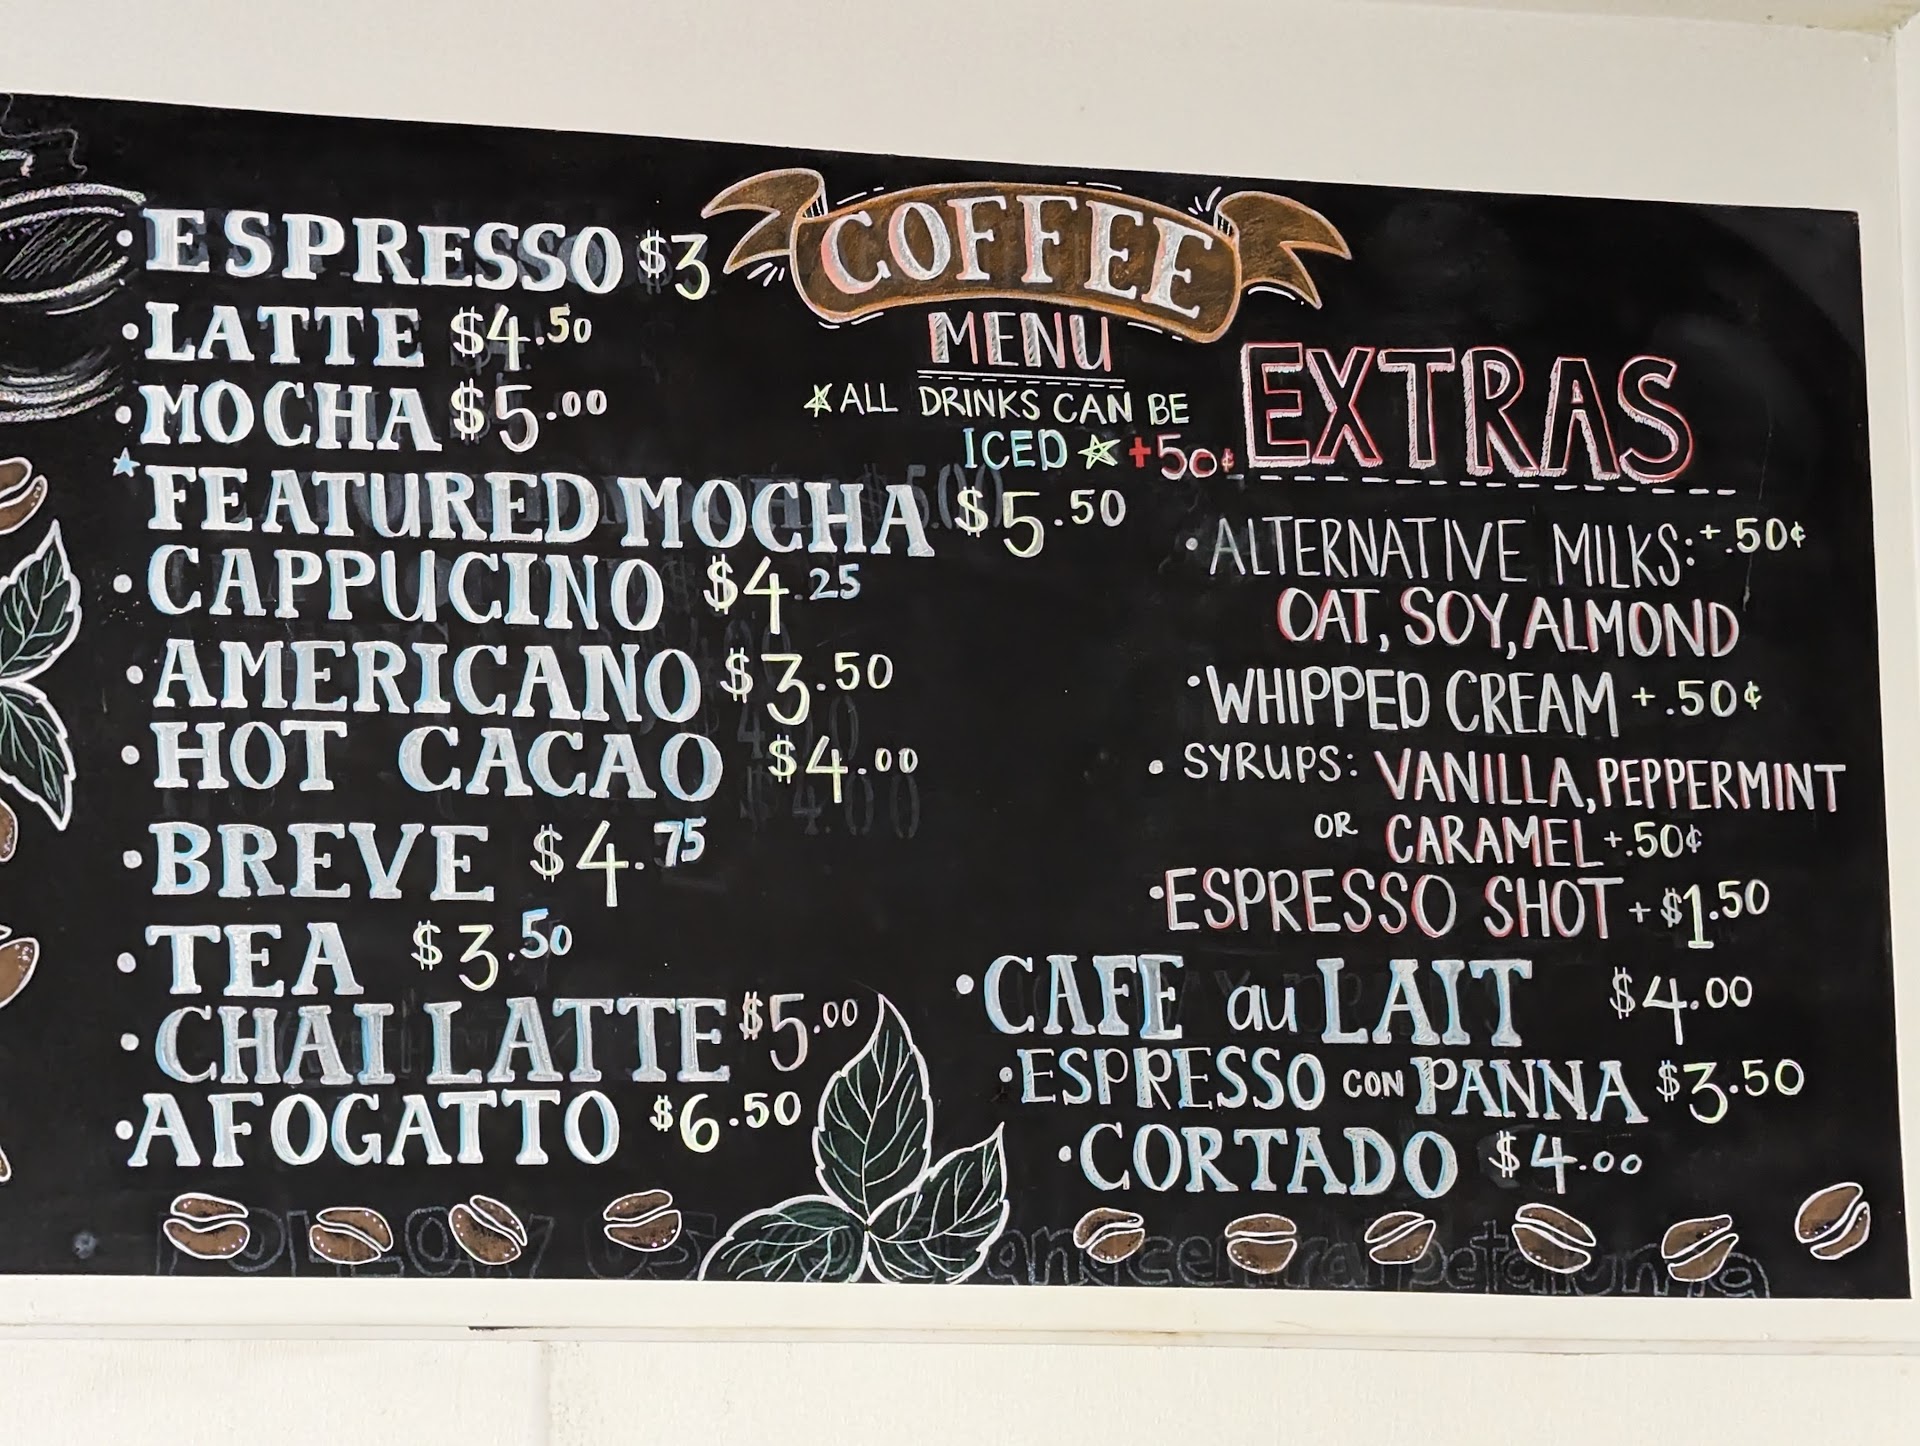 COFFEE
MENU
☆ALL DRINKS CAN BE
ICED ☆ +50¢
•ESPRESSO $3
•LATTE $4.50
•MOCHA $5.00
★FEATURED MOCHA $5.50
•CAPPUCINO $4.25
•AMERICANO $3.50
•HOT CACAO $4.00
•BREVE $4.75
•TEA $3.50
•CHAI LATTE $5.00
•AFOGATTO $6.50
EXTRAS
•ALTERNATIVE MILKS: +.50¢
OAT, SOY, ALMOND
•WHIPPED CREAM +.50¢
•SYRUPS: VANILLA, PEPPERMINT
OR CARAMEL +.50¢
•ESPRESSO SHOT + $1.50
•CAFE au LAIT $4.00
•ESPRESSO CON PANNA $3.50
•CORTADO $4.00